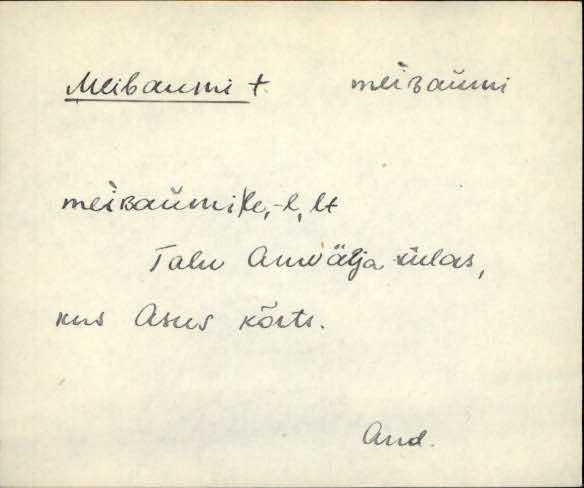 Meibaumi t. meìʙaŭmi
meìʙaŭmi|le, -l, lt
Talu Annvälja külas,
kus asus kõrts.
And.